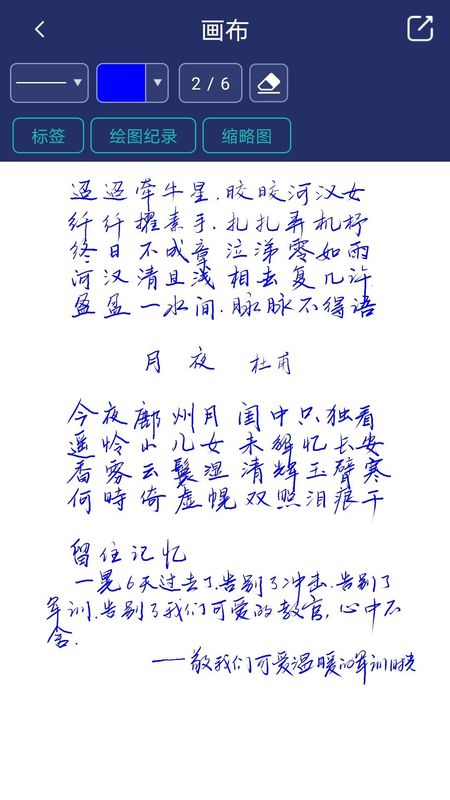 画布
2 / 6
标签 绘图纪录 缩略图
迢迢牵牛星.皎皎河汉女
纤纤擢素手.扎扎弄机杼
终日不成章 泣涕零如雨
河汉清且浅 相去复几许
盈盈一水间.脉脉不得语
月夜 杜甫
今夜鄜州月 闺中只独看
遥怜小儿女 未解忆长安
香雾云鬓湿 清辉玉臂寒
何時倚虚幌 双照泪痕干
留住记忆
一晃6天过去了.告别了冲击.告别了
军训.告别了我们可爱的教官,心中不
舍.
——敬我们可爱温暖的军训时光